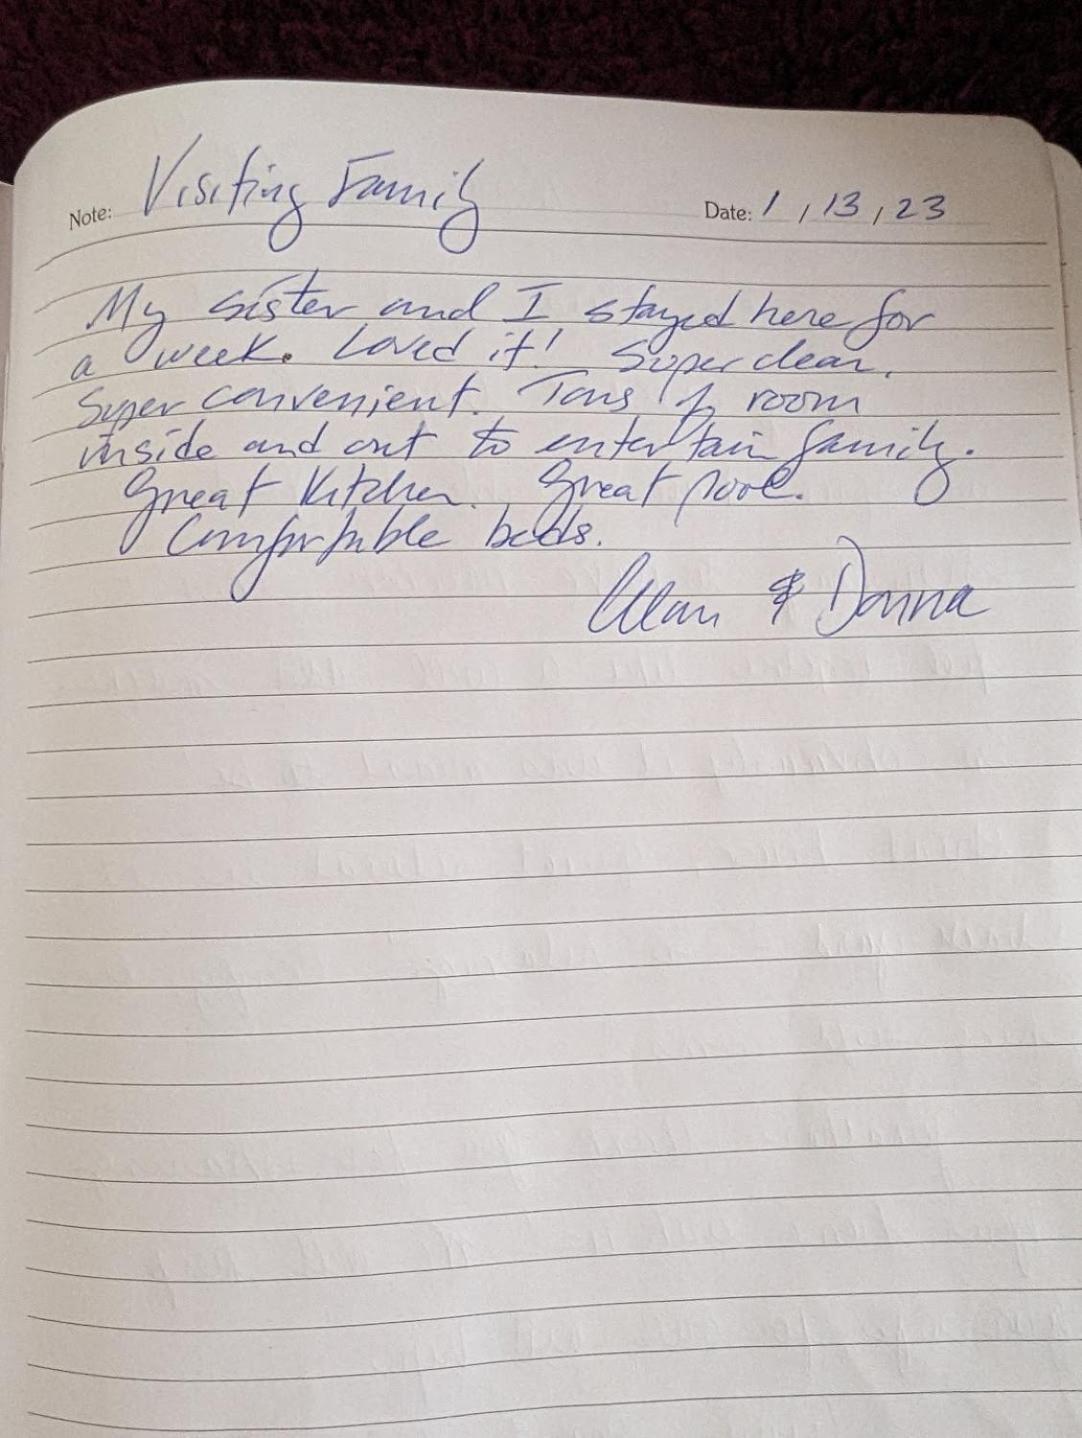 Note: Visiting Family Date: 1/13/23
My sister and I stayed here for
a week. Loved it! Super clean.
Super convenient. Tons of room
inside and out to entertain family.
Great kitchen. Great pool.
Comfortable beds.
Alan & Donna